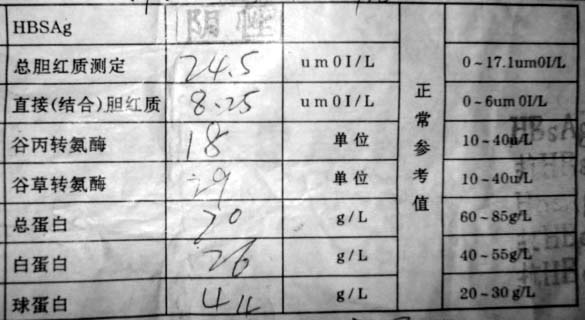 HBSAg 阴性
总胆红质测定 24.5 umOI/L 0~17.1umOI/L
直接(结合)胆红质 8.25 umOI/L 0~6umOI/L
谷丙转氨酶 18 单位 10~40u/L
谷草转氨酶 29 单位 10~40u/L
总蛋白 70 g/L 60~85g/L
白蛋白 26 g/L 40~55g/L
球蛋白 44 g/L 20~30g/L
正常参考值